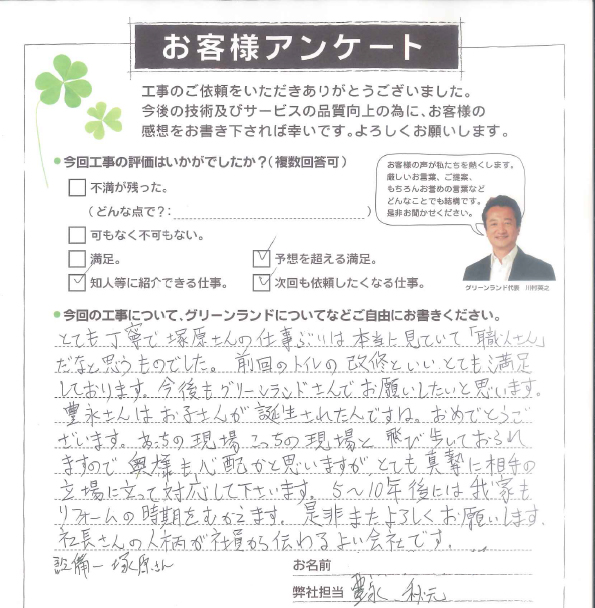 お客様アンケート
工事のご依頼をいただきありがとうございました。
今後の技術及びサービスの品質向上の為に、お客様の
感想をお書き下されば幸いです。よろしくお願いします。
●今回工事の評価はいかがでしたか?(複数回答可)
不満が残った。
(どんな点で?: )
可もなく不可もない。
満足。
予想を超える満足。
知人等に紹介できる仕事。
次回も依頼したくなる仕事。
お客様の声が私たちを熱くします。
厳しいお言葉、ご提案、
もちろんお誉めの言葉など
どんなことでも結構です。
是非お聞かせください。
グリーンランド代表 川村英之
●今回の工事について、グリーンランドについてなどご自由にお書きください。
とても丁寧で塚原さんの仕事ぶりは本当に見ていて「職人さん」
だなと思うものでした。前回のトイレの改修といいとても満足
しております。今後もグリーンランドさんでお願いしたいと思います。
豊永さんはお子さんが誕生されたんですね。おめでとうご
ざいます。あっちの現場こっちの現場と飛び歩いておられ
ますので奥様も心配かと思いますが、とても真摯に相手の
立場に立って対応して下さいます。5〜10年後には我家も
リフォームの時期をむかえます。是非またよろしくお願いします。
社長さんの人柄が社員から伝わるよい会社です。
設備 塚原さん
お名前
弊社担当 豊永 秋元